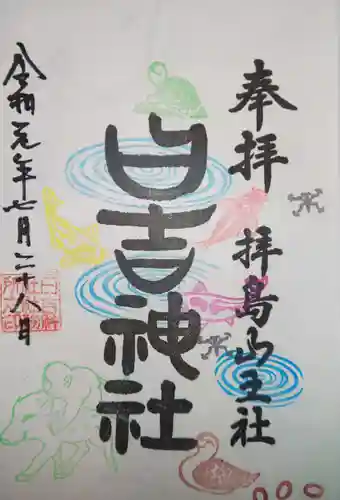 奉拝
拝島山王社
日吉神社
令和元年七月二十八日